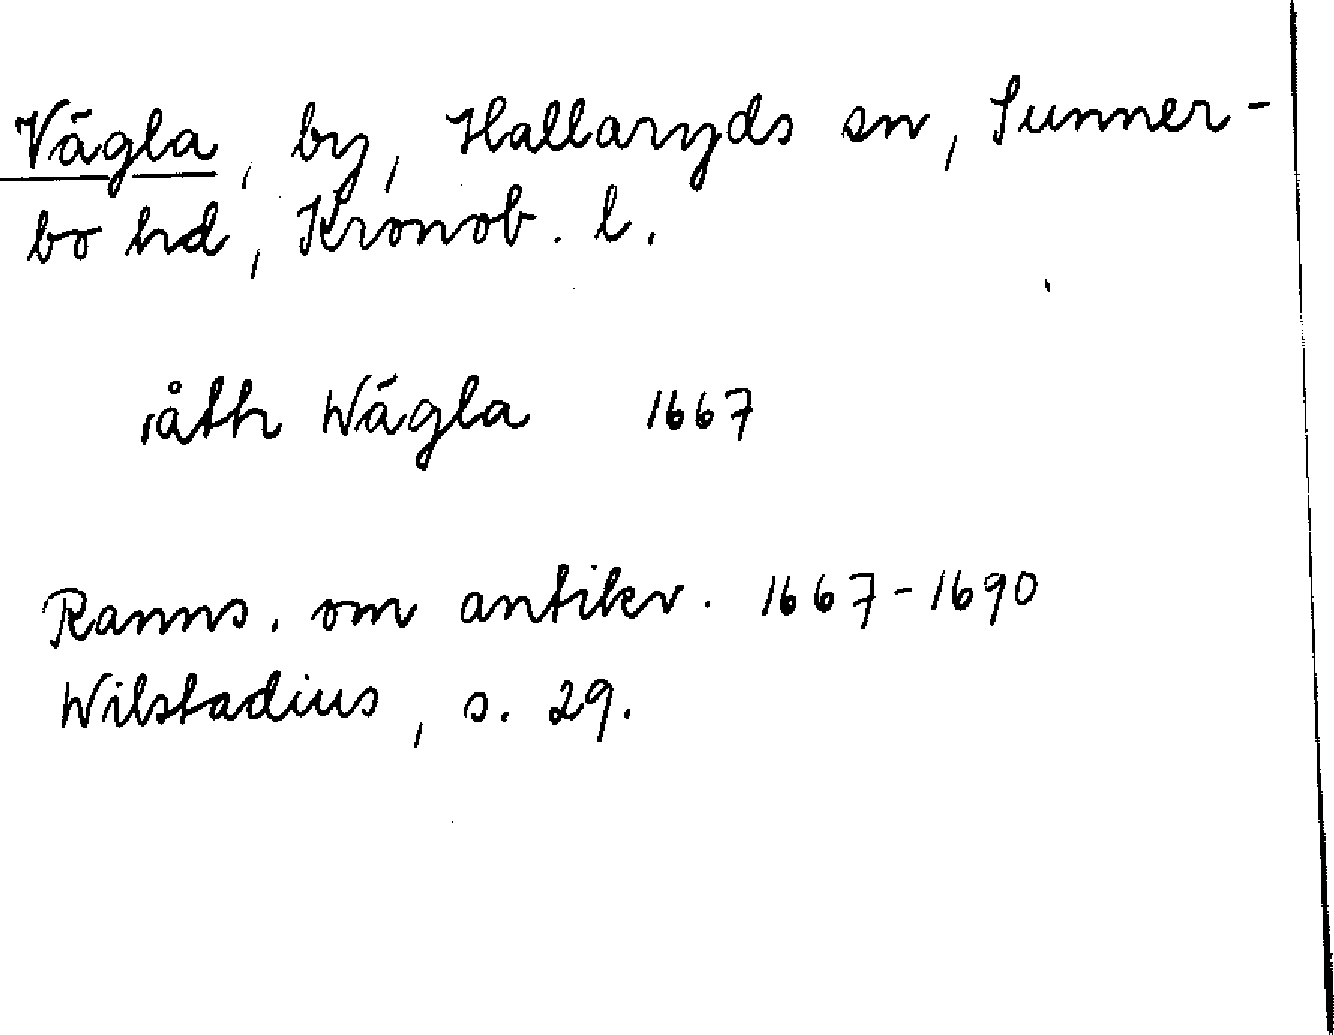 Vägla, by, Hallaryds sn, Sunner-
bo hd, Kronob. l.
iåth Wägla 1667
Ranns. om antikv. 1667-1690
Wilstadius, s. 29.